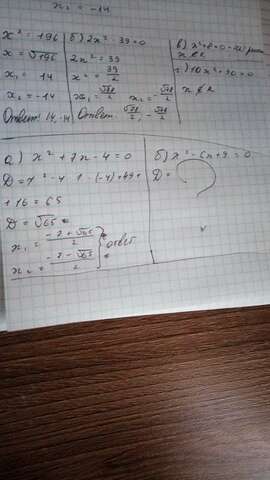 x₂ = -14
x² = 196
x = √196
x₁ = 14
x₂ = -14
Ответ: 14, -14
б) 2x² - 39 = 0
2x² = 39
x² = 39/2
x₂ = -√78/2
Ответ: √78/2, -√78/2
в)
г) 10x² + 90 = 0
а) x² + 7x - 4 = 0
D = 7² - 4 · 1 · (-4) = 49 +
+ 16 = 65
D = √65
x₁ = (-7 + √65)/2
x₂ = (-7 - √65)/2
} ответ
б) x² - 6x + 9 = 0
D =